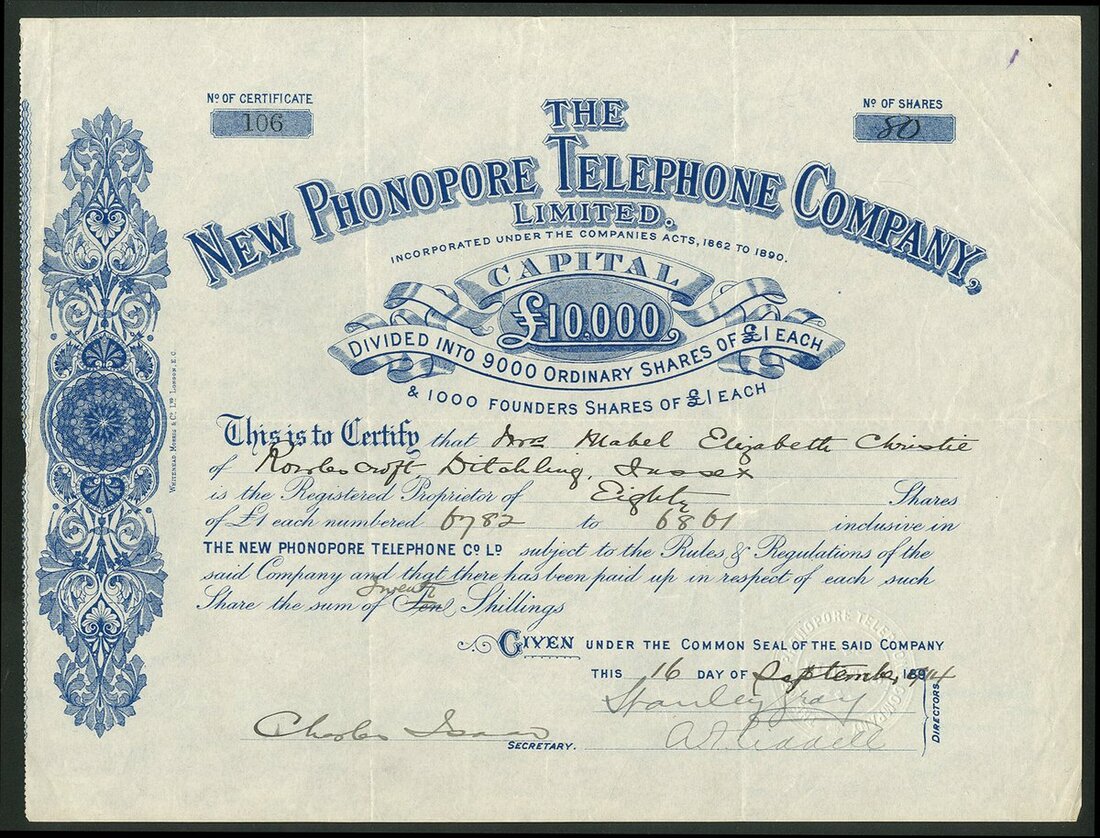 Nº OF CERTIFICATE
106
Nº OF SHARES
80
THE
NEW PHONOPORE TELEPHONE COMPANY,
LIMITED.
INCORPORATED UNDER THE COMPANIES ACTS, 1862 TO 1890.
CAPITAL
£10,000
DIVIDED INTO 9000 ORDINARY SHARES OF £1 EACH
& 1000 FOUNDERS SHARES OF £1 EACH
This is to Certify that Mrs Mabel Elizabeth Christie
of Rowles croft Ditchling, Sussex
is the Registered Proprietor of Eighty Shares
of £1 each numbered 6782 to 6861 inclusive in
THE NEW PHONOPORE TELEPHONE Cº Lᴰ subject to the Rules & Regulations of the
said Company and that there has been paid up in respect of each such
Share the sum of Twenty Ten Shillings
GIVEN UNDER THE COMMON SEAL OF THE SAID COMPANY
THIS 16 DAY OF September, 189 1914
Stanley Gray
Charles Isaac
SECRETARY.
DIRECTORS
WHITEHEAD MORRIS & Cº LTD LONDON, E.C.